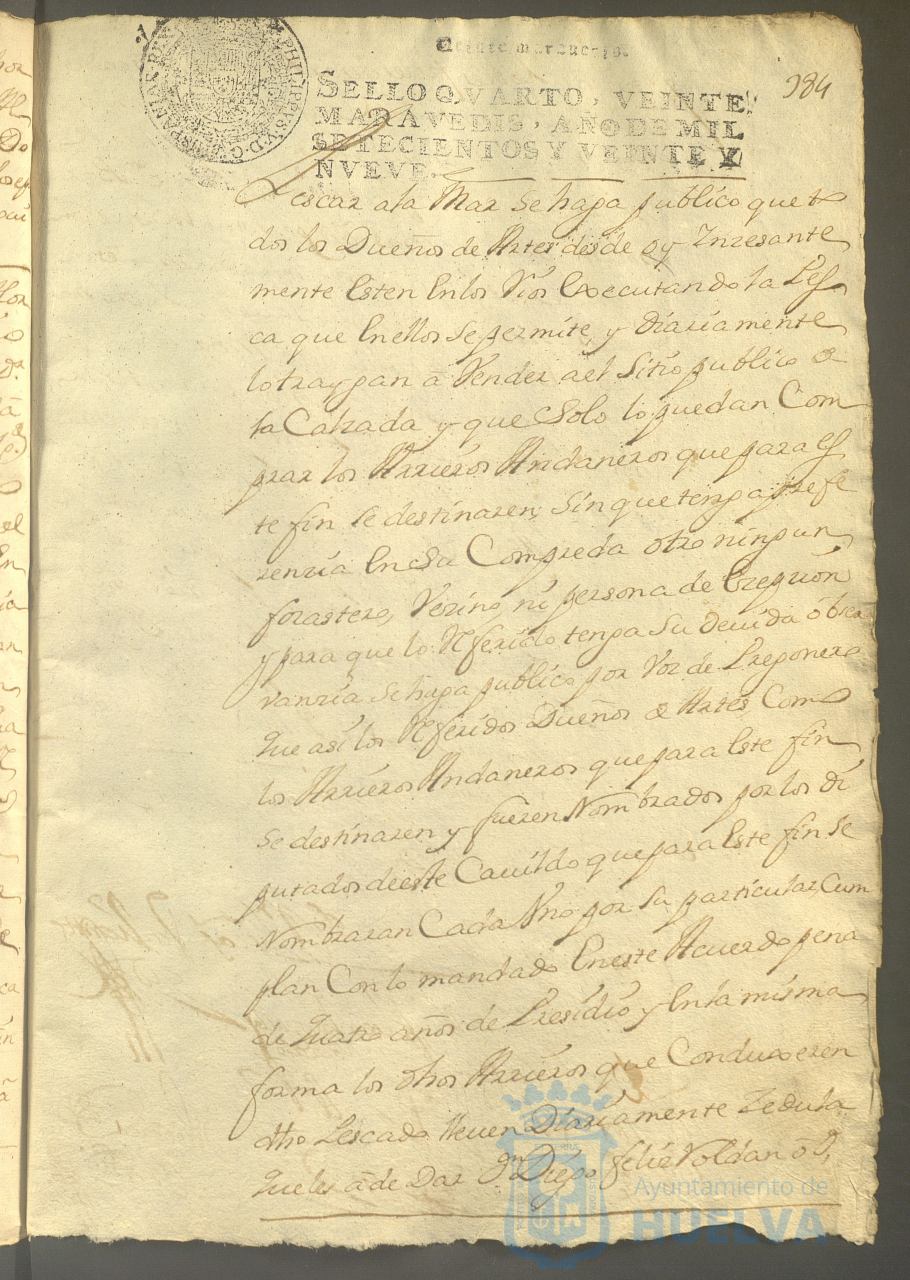 984
SELLO QVARTO, VEINTE
MARAVEDIS, AÑO DE MIL
SETECIENTOS Y VEINTE Y
NVEVE.
Pescar ala Mar se haga publico que to
dos los Dueños de Artes desde oy Inzesante
mente Esten Enlos Rios Executando la Pes
ca que Enellos se permite, y diariamente
lo traygan â Vender ael Sitio publico de
la Calzada y que Solo lo puedan Com
prar los Arrieros Andaneros que para es
te fin se destinaren, sin que tenga prefe
renzia En su Compreda otro ningun
forastero, Vezino, ni persona de Exepzion
y para que lo Referido tenga su devida obser
vanzia Se haga publico por Voz de Pregonero
que asi los Referidos Dueños de Artes Como
los Arrieros Andaneros que para Este fin
se destinaren y fueren Nombrados por los di
putados deeste Cavildo que para Este fin se
Nombraran Cada Vno por su particular, Cum
plan Con lo mandado Eneste Acuerdo pena
de quatro años de Presidio y En la misma
forma los dhos Arrieros que Conduxeren
dho Pescado lleven Diariamente Zedula
que les â de Dar Dn Diego feliz Roldan o D,
Ayuntamiento de
HUELVA